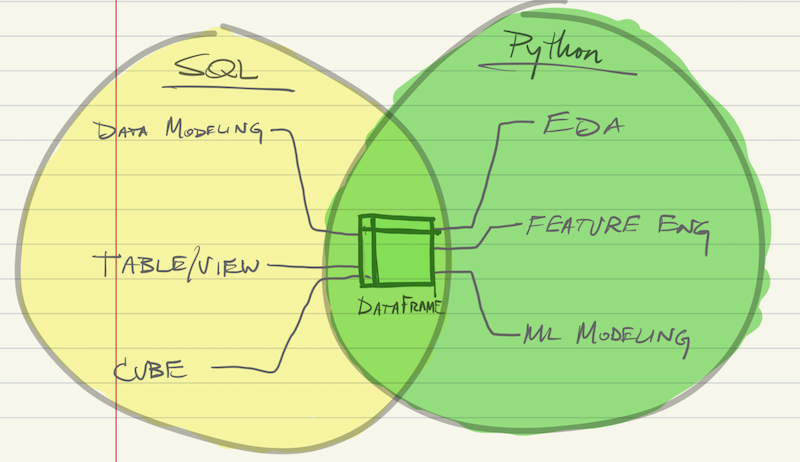 SQL
DATA MODELING
TABLE/VIEW
CUBE
DATAFRAME
Python
EDA
FEATURE ENG
ML MODELING